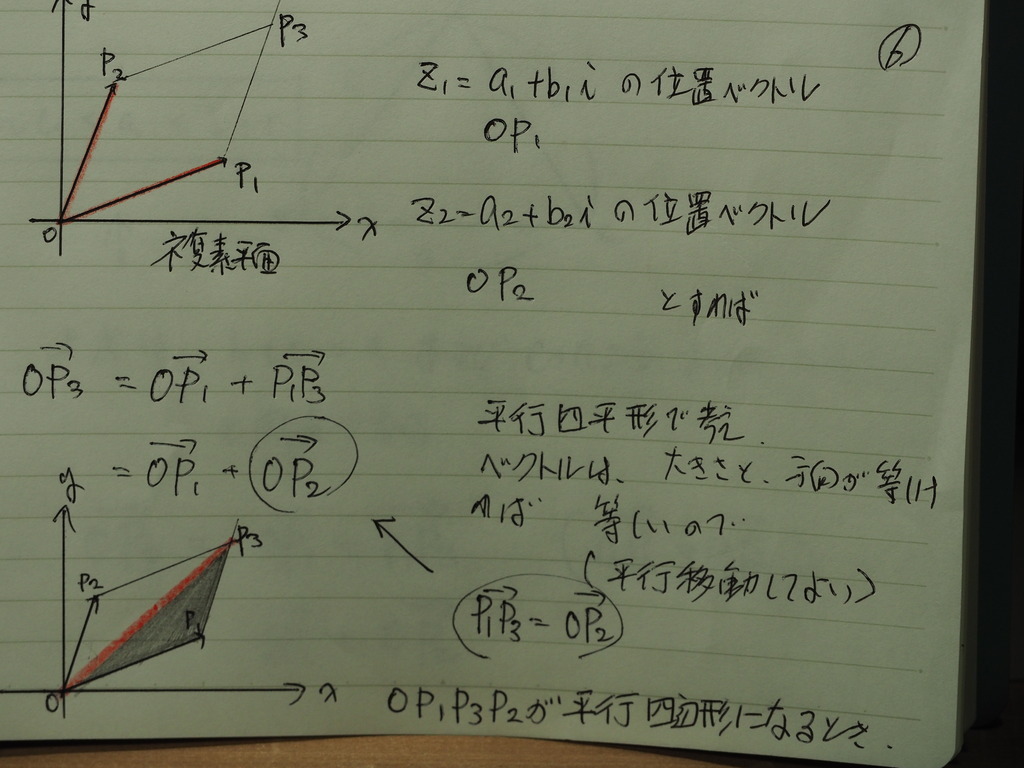 ⑥
y
P3
P2
P1
O
x
複素平面
Z1 = a1 + b1 i の位置ベクトル
OP1
Z2 = a2 + b2 i の位置ベクトル
OP2 とすれば
OP3 = OP1 + P1P3
= OP1 + OP2
平行四平形で考え.
ベクトルは、大きさと、方向が等しけ
れば 等しいので…
(平行移動してよい)
P1P3 = OP2
y
P3
P2
P1
O
x
OP1P3P2が平行四辺形になるとき.